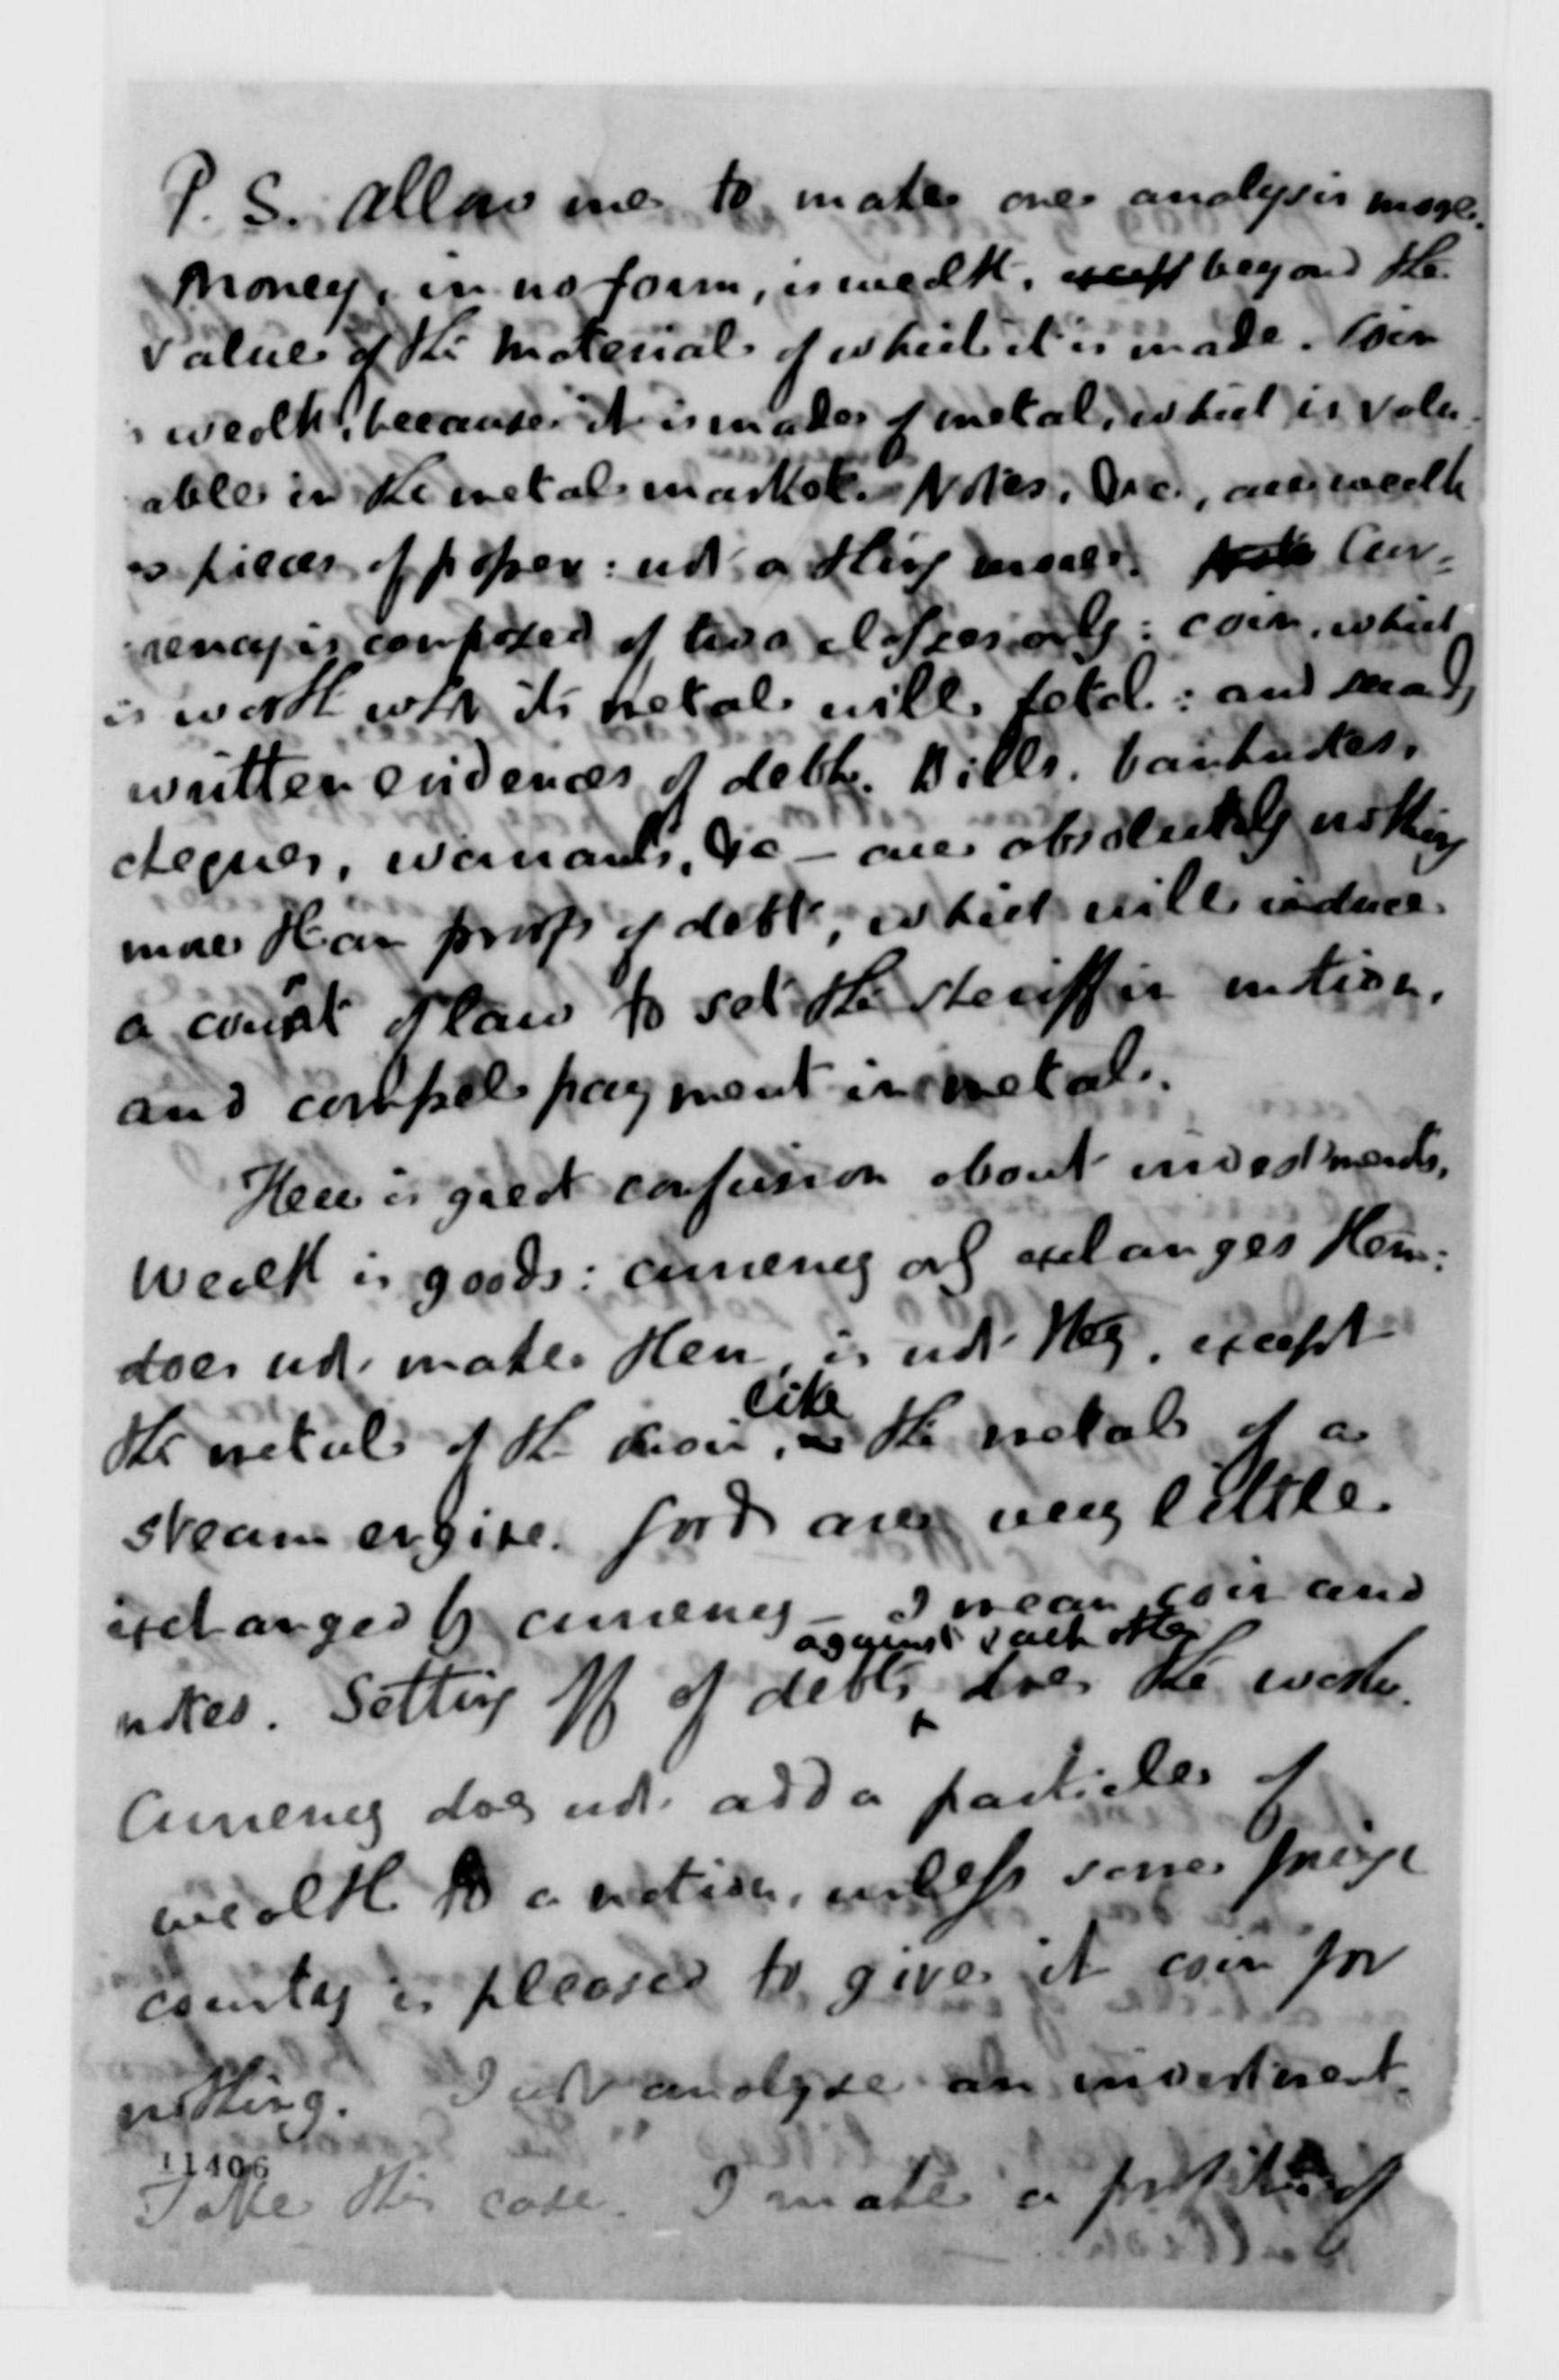 P. S. Allow me to make one analysis more.
Money, in no form, is wealth, except beyond the
value of the material of which it is made. Coin
is wealth, because it is made of metal, which is valu-
able in the metal market. Notes, &c., are wealth
as pieces of paper: not a thing more. Cur-
rency is composed of two classes only: coin, which
is worth what its metal will fetch: and
written evidences of debt. Bills, banknotes,
cheques, warrants, &c — are absolutely nothing
more than proofs of debt, which will induce
a court of law to set the sheriff in motion,
and compel payment in metal.
Here is great confusion about investments.
Wealth is goods: currency only exchanges them:
does not make them, is not they, except
the metal of the coin, like the metal of a
steam engine. Goods are very little
exchanged by currency — I mean coin and
against each other
notes. Setting off of debts does the work.
Currency does not add a particle of
wealth to a nation, unless some foreign
country is pleased to give it coin for
nothing. Just analyse an investment.
11406
Take this case. I make a profit of